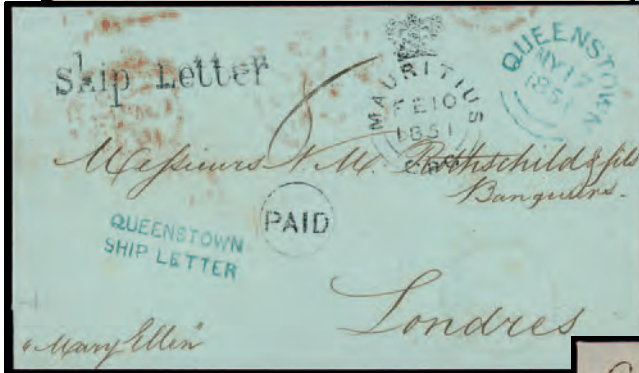 Ship Letter
MAURITIUS
FE 10
1851
QUEENSTOWN
MY 17
1851
Messieurs N. M. Rothschild & fils
Banquiers.
PAID
QUEENSTOWN
SHIP LETTER
Londres
"Mary Ellen"